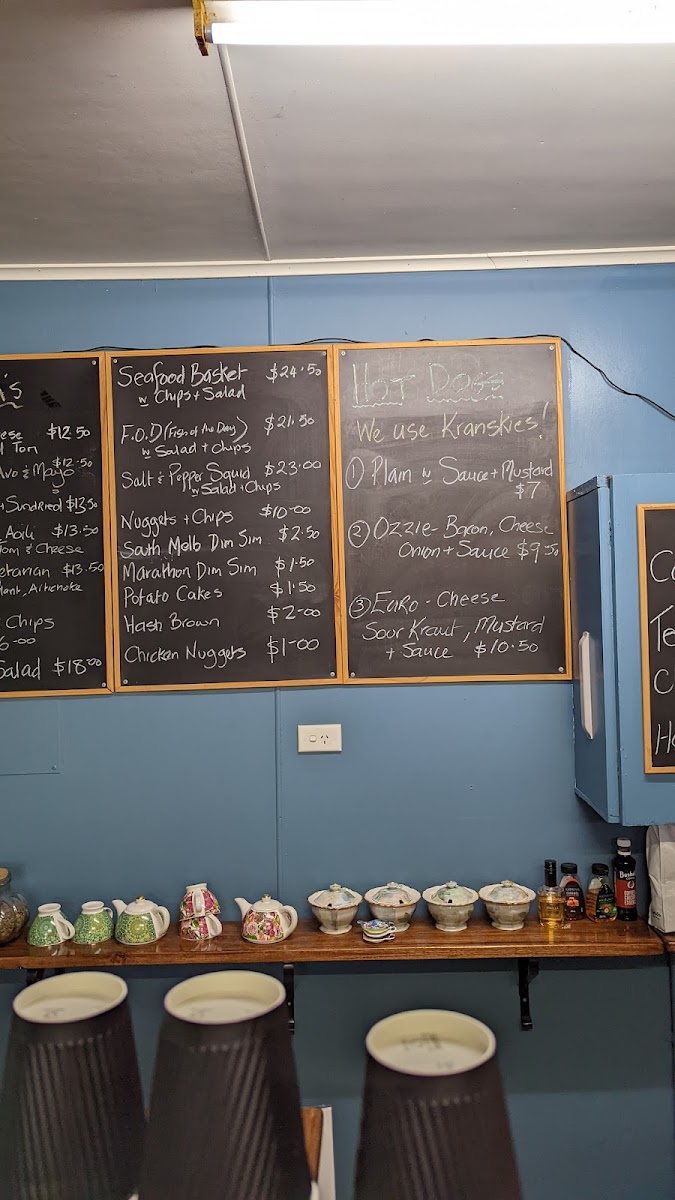 i's
$12.50
Ton
Avo & Mayo $12.50
+ Sundried $13.50
Aoili $13.50
& Cheese
etarian $13.50
Chips
Salad $18.00
Seafood Basket $24.50
w Chips + Salad
F.O.D (Fish of the Day) $21.50
w Salad + Chips
Salt & Pepper Squid $23.00
w Salad + Chips
Nuggets + Chips $10-00
South Melb Dim Sim $2.50
Marathon Dim Sim $1.50
Potato Cakes $1.50
Hash Brown $2-00
Chicken Nuggets $1-00
Hot Dogs
We use Kranskies!
1 Plain w Sauce + Mustard
$7
2 Ozzie - Bacon, Cheese
Onion + Sauce $9.50
3 Euro - Cheese
Sour Kraut, Mustard
+ Sauce $10.50
Co
Te
C
Ho